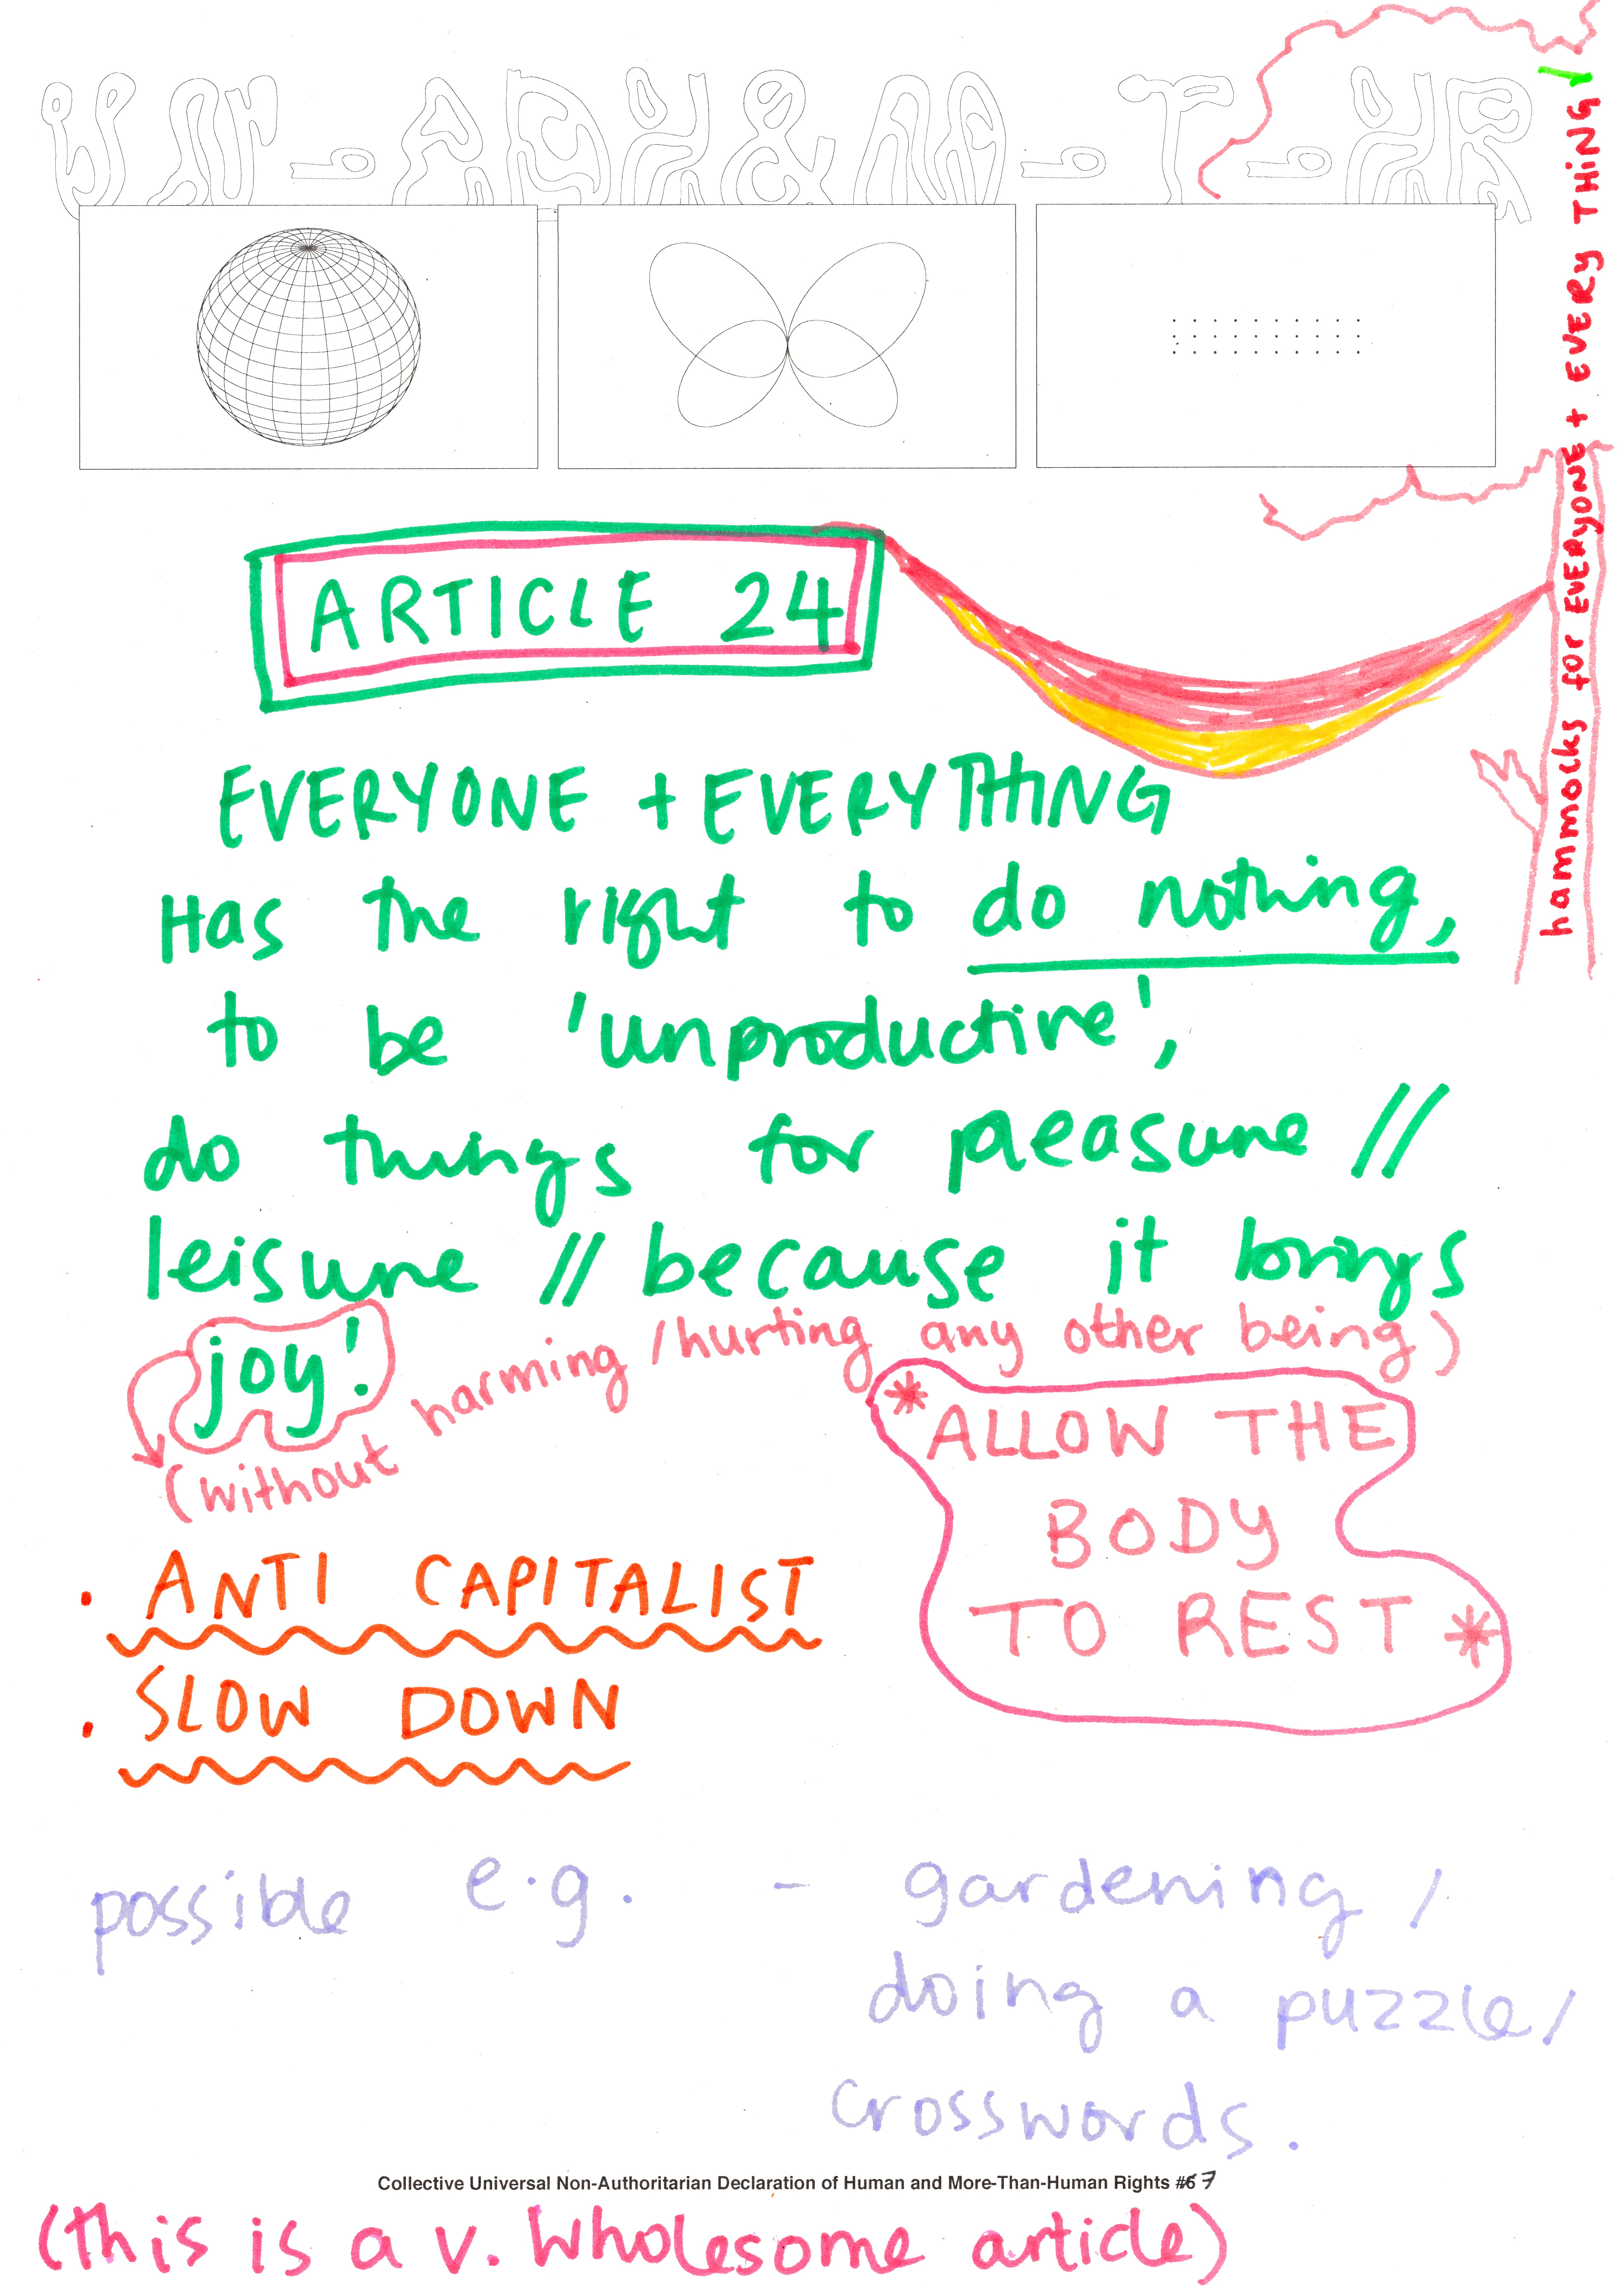 hammocks for EVERYONE + EVERY THING !
ARTICLE 24
EVERYONE + EVERYTHING
Has the right to do nothing,
to be 'unproductive',
do things for pleasure //
leisure // because it brings
joy!
(without harming / hurting any other being)
* ALLOW THE
BODY
TO REST *
. ANTI CAPITALIST
. SLOW DOWN
possible e.g. - gardening /
doing a puzzle /
crosswords.
Collective Universal Non-Authoritarian Declaration of Human and More-Than-Human Rights #67
(this is a v. wholesome article)